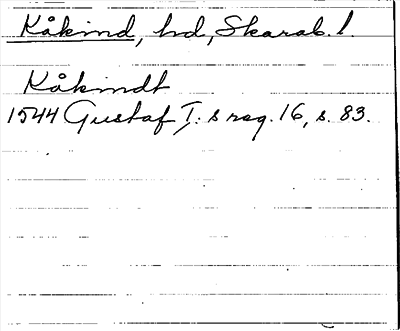 Kåkind, hd, Skarab. l.
Kåkindt
1544 Gustaf I:s reg. 16, s. 83.